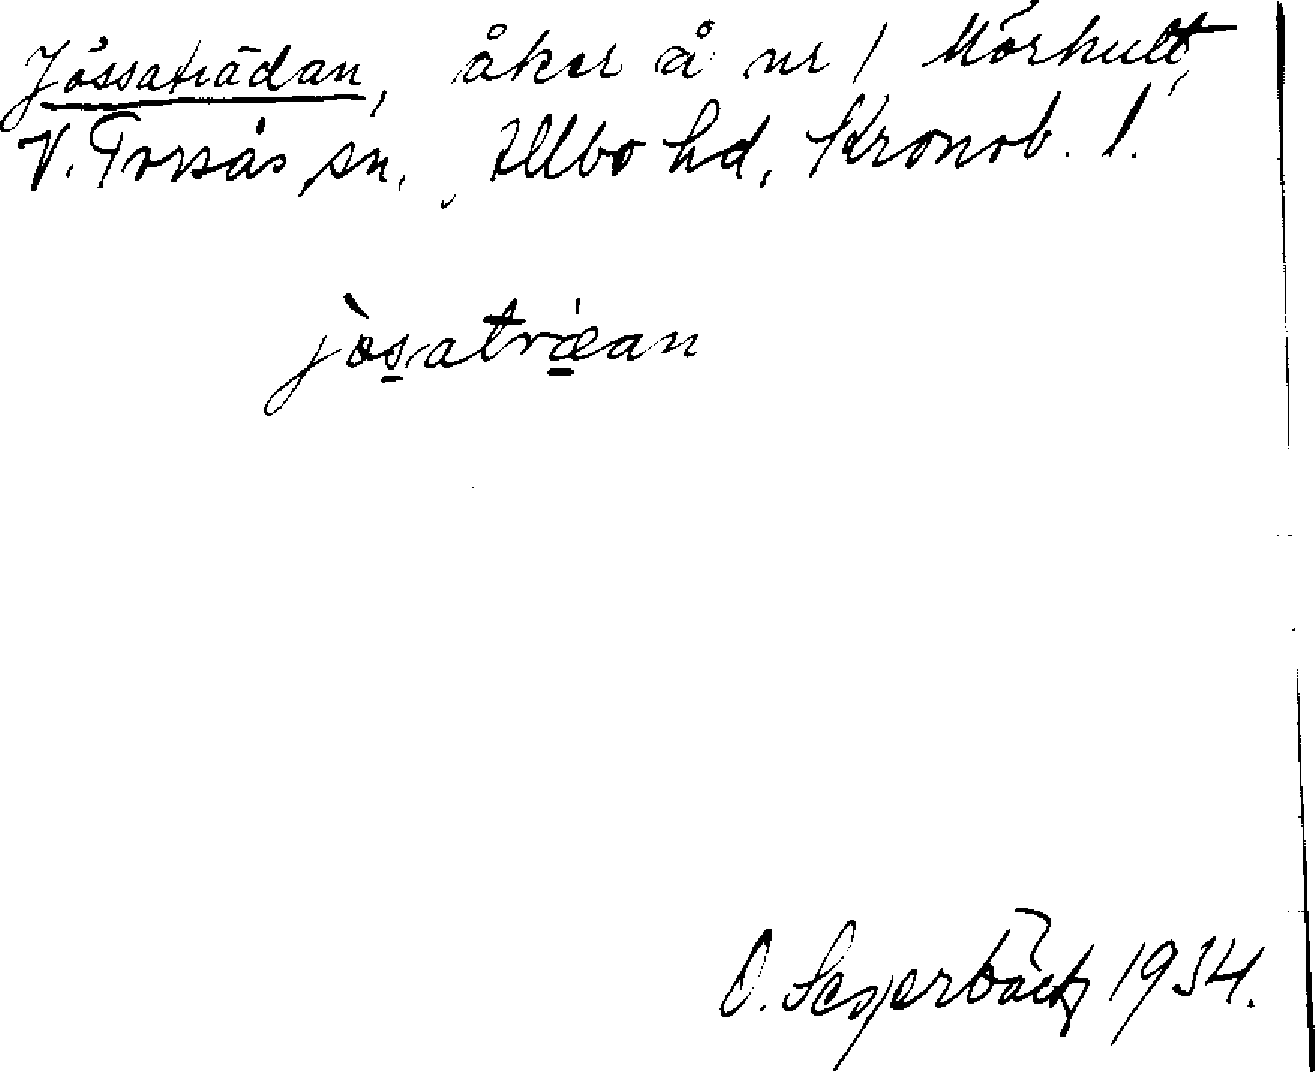 Jössaträdan, åker å nr 1 Mörhult,
V. Torsås sn., Allbo hd, Kronob. l.
jòsatræan
O. Segerbäck 1934.